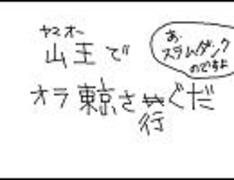 ヤマオー
山王で
オラ東京さ行ぐだ
あ、
スラムダンク
のですよ